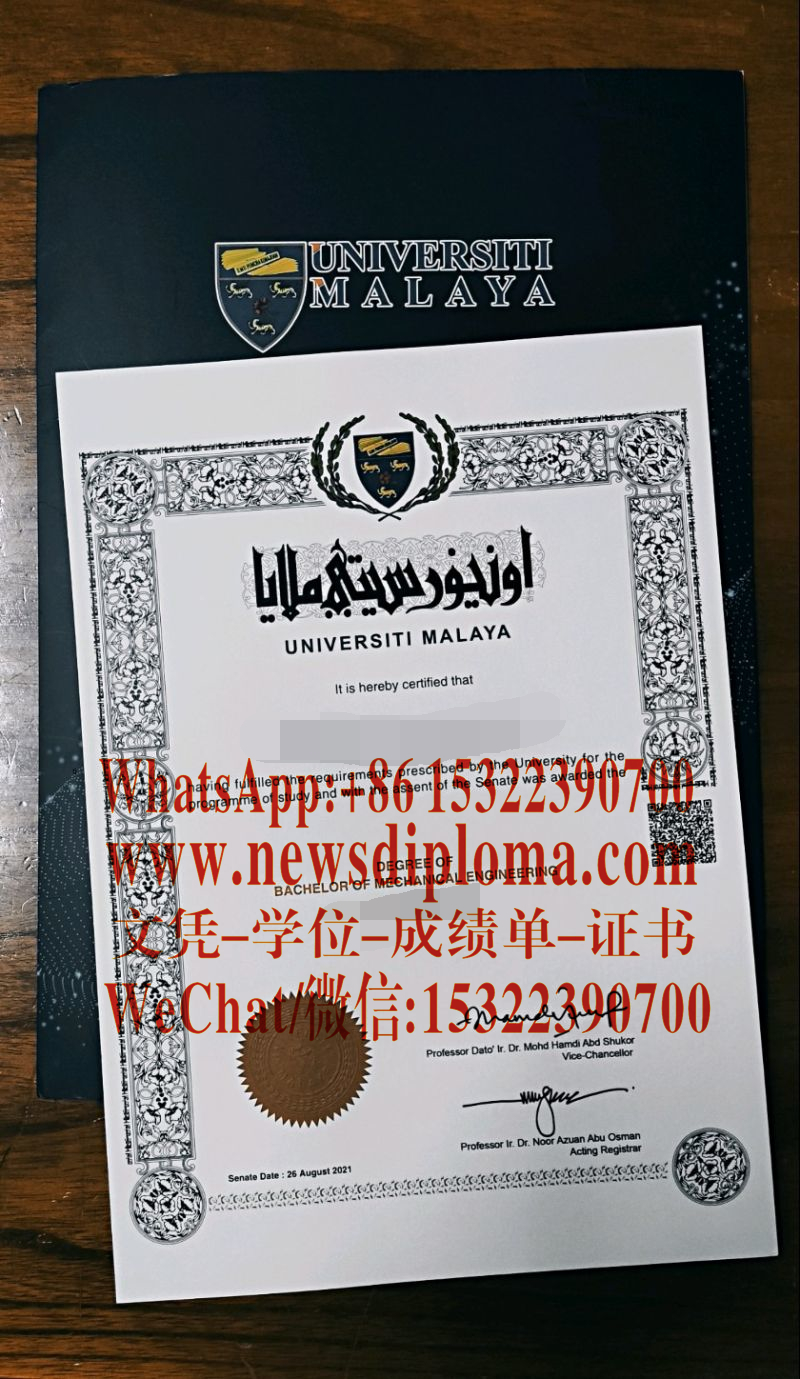 UNIVERSITI
MALAYA
اونيۏرسيتي ملايا
UNIVERSITI MALAYA
It is hereby certified that
having fulfilled the requirements prescribed by the University for the
programme of study and with the assent of the Senate was awarded the
WhatsApp:+86 15322390700
DEGREE OF
www.newsdiploma.com
BACHELOR OF MECHANICAL ENGINEERING
文凭-学位-成绩单-证书
WeChat/微信:15322390700
Professor Dato' Ir. Dr. Mohd Hamdi Abd Shukor
Vice-Chancellor
Professor Ir. Dr. Noor Azuan Abu Osman
Acting Registrar
Senate Date : 26 August 2021